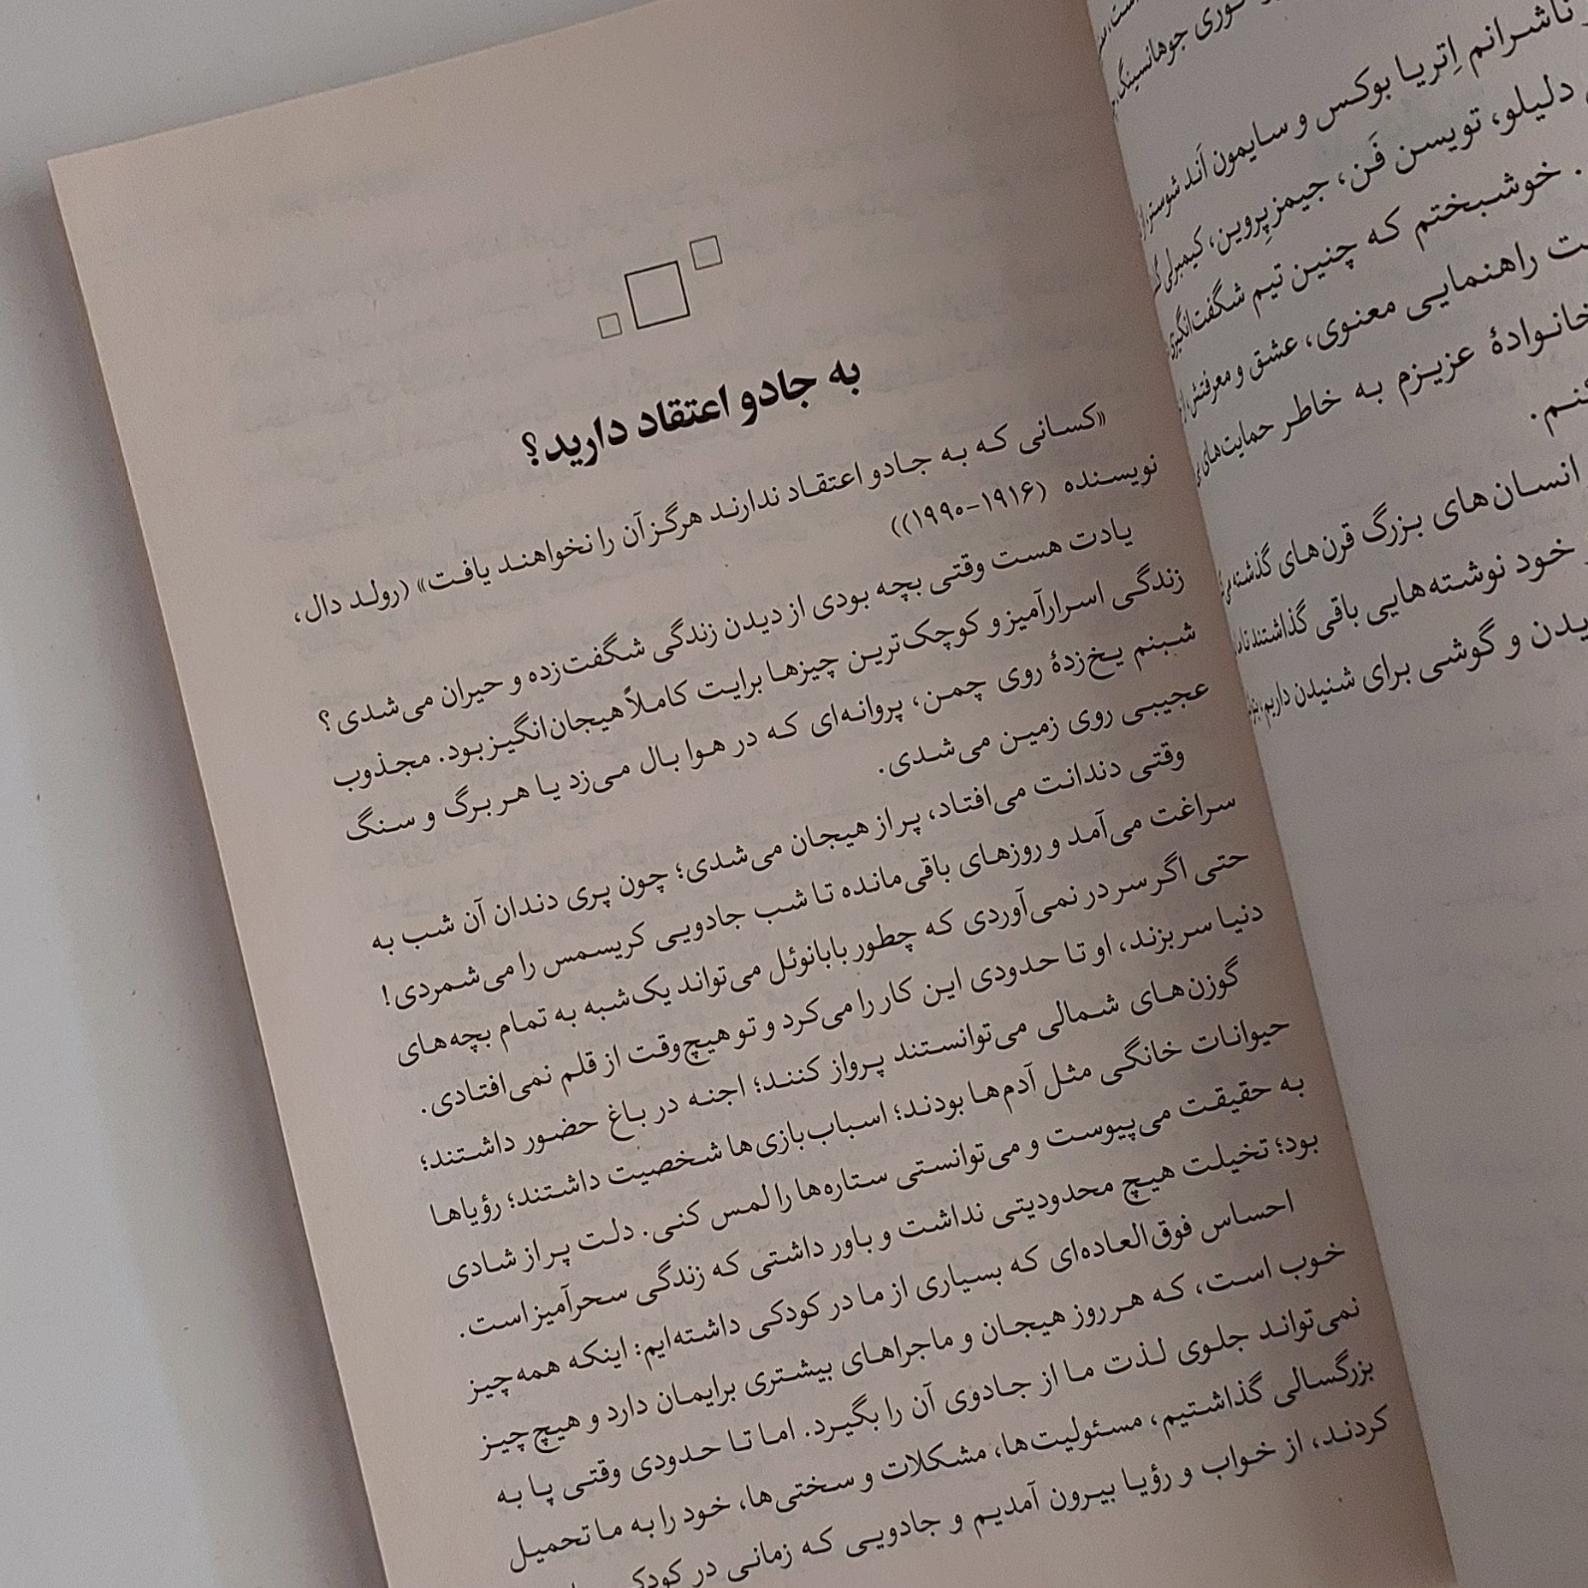 به جادو اعتقاد دارید؟
«کسانی که به جادو اعتقاد ندارند هرگز آن را نخواهند یافت» (رولد دال،
نویسنده (۱۹۱۶-۱۹۹۰))
یادت هست وقتی بچه بودی از دیدن زندگی شگفت‌زده و حیران می‌شدی؟
زندگی اسرارآمیز و کوچک‌ترین چیزها برایت کاملاً هیجان‌انگیز بود. مجذوب
شبنم یخ‌زدهٔ روی چمن، پروانه‌ای که در هوا بال می‌زد یا هر برگ و سنگ
عجیبی روی زمین می‌شدی.
وقتی دندانت می‌افتاد، پر از هیجان می‌شدی؛ چون پری دندان آن شب به
سراغت می‌آمد و روزهای باقی‌مانده تا شب جادویی کریسمس را می‌شمردی!
حتی اگر سر در نمی‌آوردی که چطور بابانوئل می‌تواند یک‌شبه به تمام بچه‌های
دنیا سر بزند، او تا حدودی این کار را می‌کرد و تو هیچ‌وقت از قلم نمی‌افتادی.
گوزن‌های شمالی می‌توانستند پرواز کنند؛ اجنه در باغ حضور داشتند؛
حیوانات خانگی مثل آدم‌ها بودند؛ اسباب‌بازی‌ها شخصیت داشتند؛ رؤیاها
به حقیقت می‌پیوست و می‌توانستی ستاره‌ها را لمس کنی. دلت پر از شادی
بود؛ تخیلت هیچ محدودیتی نداشت و باور داشتی که زندگی سحرآمیز است.
احساس فوق‌العاده‌ای که بسیاری از ما در کودکی داشته‌ایم: اینکه همه‌چیز
خوب است، که هر روز هیجان و ماجراهای بیشتری برایمان دارد و هیچ‌چیز
نمی‌تواند جلوی لذت ما از جادوی آن را بگیرد. اما تا حدودی وقتی پا به
بزرگسالی گذاشتیم، مسئولیت‌ها، مشکلات و سختی‌ها، خود را به ما تحمیل
کردند، از خواب و رؤیا بیرون آمدیم و جادویی که زمانی در
ناشرانم اِتریا بوکس و سایمون اَند شوستر
دلیلو، تویسن فَن، جیمز پِروین، کیمبرلی
. خوشبختم که چنین تیم شگفت‌انگیزی
راهنمایی معنوی، عشق و معرفتش
خانوادهٔ عزیزم به خاطر حمایت‌های
انسان‌های بزرگ قرن‌های گذشته
خود نوشته‌هایی باقی گذاشتند
و گوشی برای شنیدن داریم،